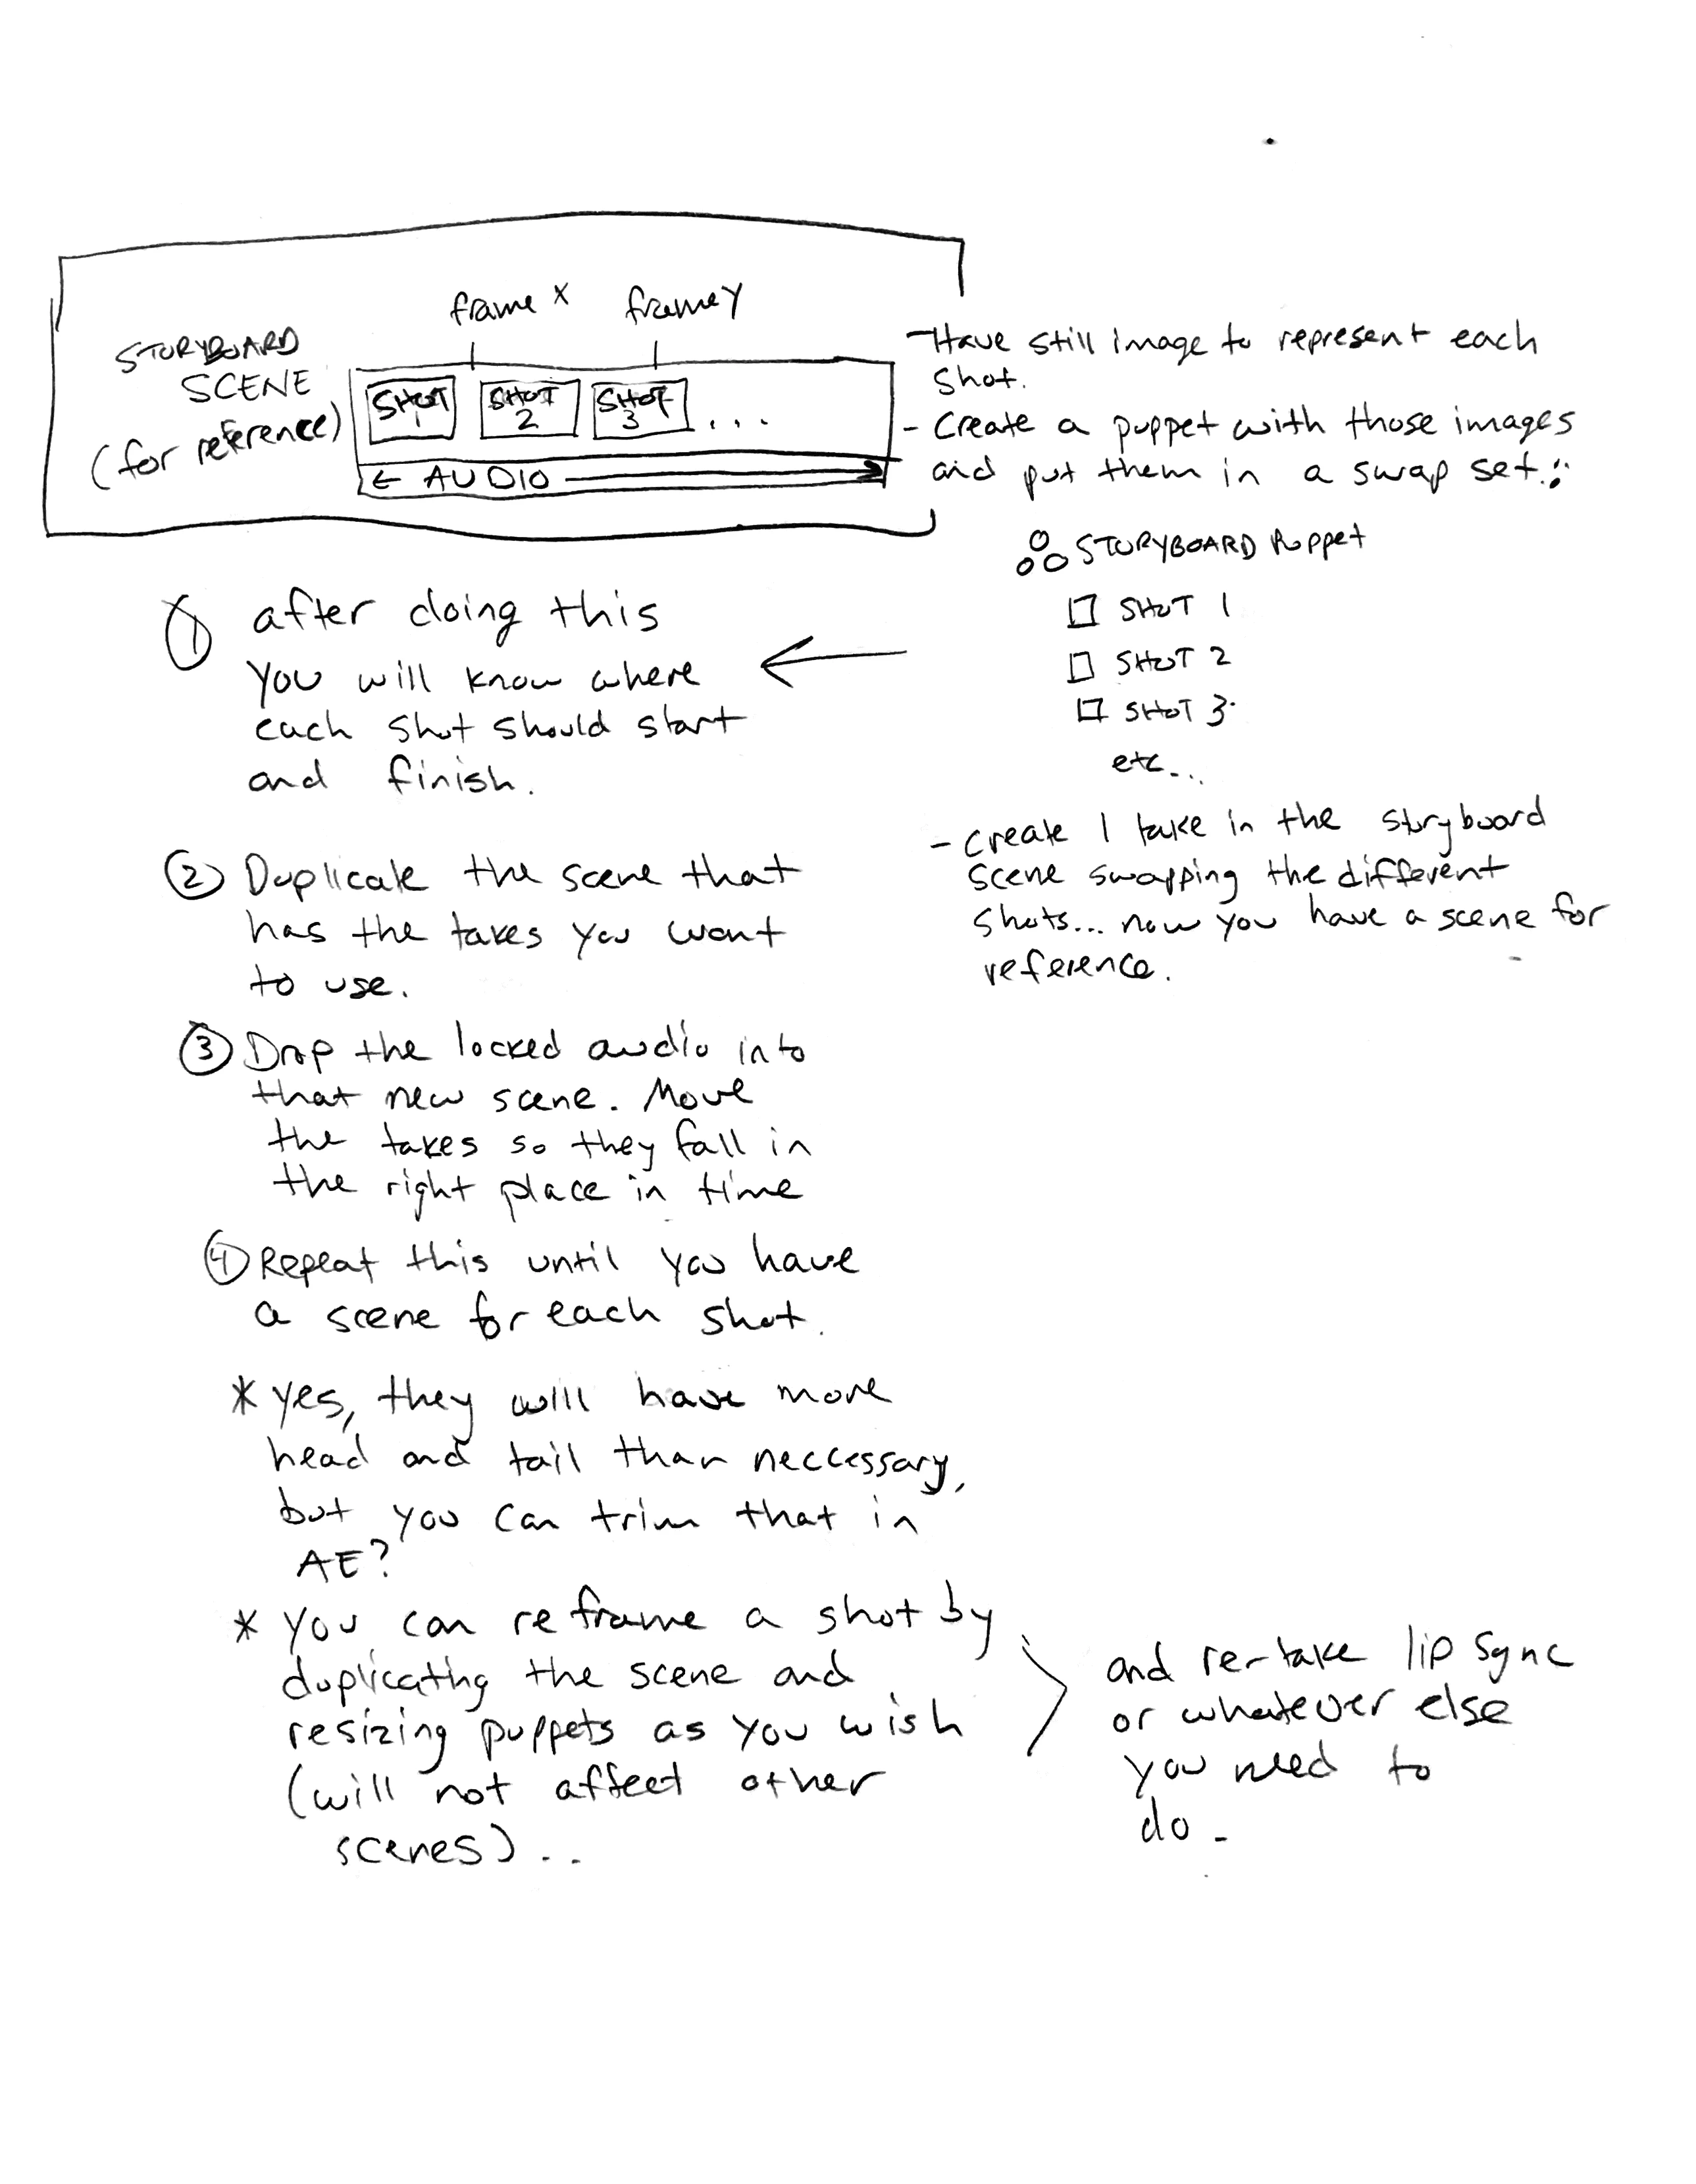 frame x frame y
STORYBOARD
SCENE
(for reference)
SHOT
1
SHOT
2
SHOT
3
...
← AUDIO
- Have still image to represent each
shot.
- Create a puppet with those images
and put them in a swap set.:
STORYBOARD Puppet
SHOT 1
SHOT 2
SHOT 3
etc...
- Create 1 take in the storyboard
scene swapping the different
shots... now you have a scene for
reference.
1 after doing this
you will know where
each shot should start
and finish.
2 Duplicate the scene that
has the takes you want
to use.
3 Drop the locked audio into
that new scene. Move
the takes so they fall in
the right place in time
4 Repeat this until you have
a scene for each shot.
* yes, they will have more
head and tail than neccessary,
but you can trim that in
AE?
* you can reframe a shot by
duplicating the scene and
resizing puppets as you wish
(will not affect other
scenes)..
and re-take lip sync
or whatever else
you need to
do.